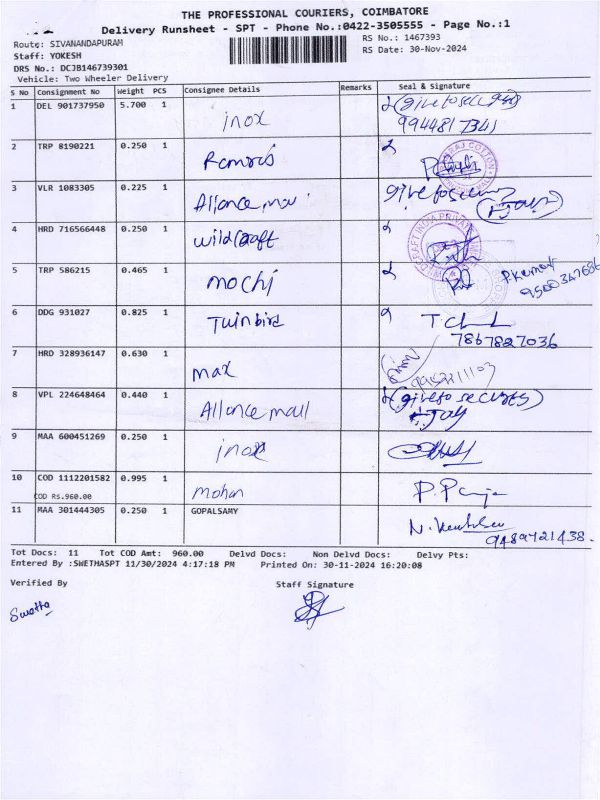 THE PROFESSIONAL COURIERS, COIMBATORE
Delivery Runsheet - SPT - Phone No.:0422-3505555 - Page No.:1
Route: SIVANANDAPURAM
RS No.: 1467393
Staff: YOKESH
RS Date: 30-Nov-2024
DRS No.: DCJB146739301
Vehicle: Two Wheeler Delivery
S No Consignment No Weight PCS Consignee Details Remarks Seal & Signature
1 DEL 901737950 5.700 1 inox (give to security)
9944817341
2 TRP 8190221 0.250 1
3 VLR 1083305 0.225 1 Allance mall give to security
4 HRD 716566448 0.250 1 wildcraft
5 TRP 586215 0.465 1 mochi P.Kumar
6 DDG 931027 0.825 1 Twinbird
7867827036
7 HRD 328936147 0.630 1 max
8 VPL 224648464 0.440 1 Allance mall (give to security)
9 MAA 600451269 0.250 1 inox
10 COD 1112201582 0.995 1 mohan
COD Rs.960.00
11 MAA 301444305 0.250 1 GOPALSAMY
9489721438.
Tot Docs: 11 Tot COD Amt: 960.00 Delvd Docs: Non Delvd Docs: Delvy Pts:
Entered By :SWETHASPT 11/30/2024 4:17:18 PM Printed On: 30-11-2024 16:20:08
Verified By Staff Signature